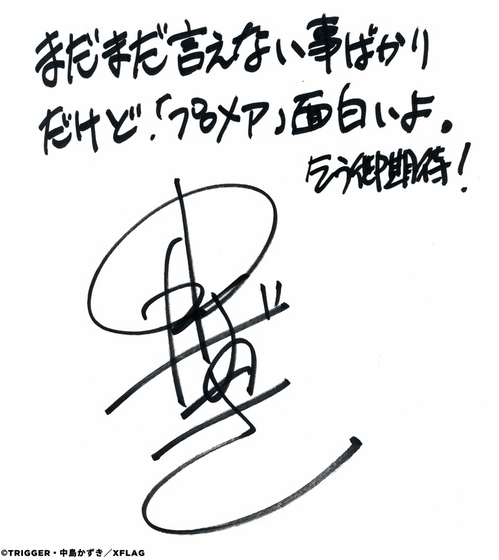 まだまだ言えない事ばかり
だけど、「プロメア」面白いよ。
乞う御期待!
©TRIGGER・中島かずき/XFLAG